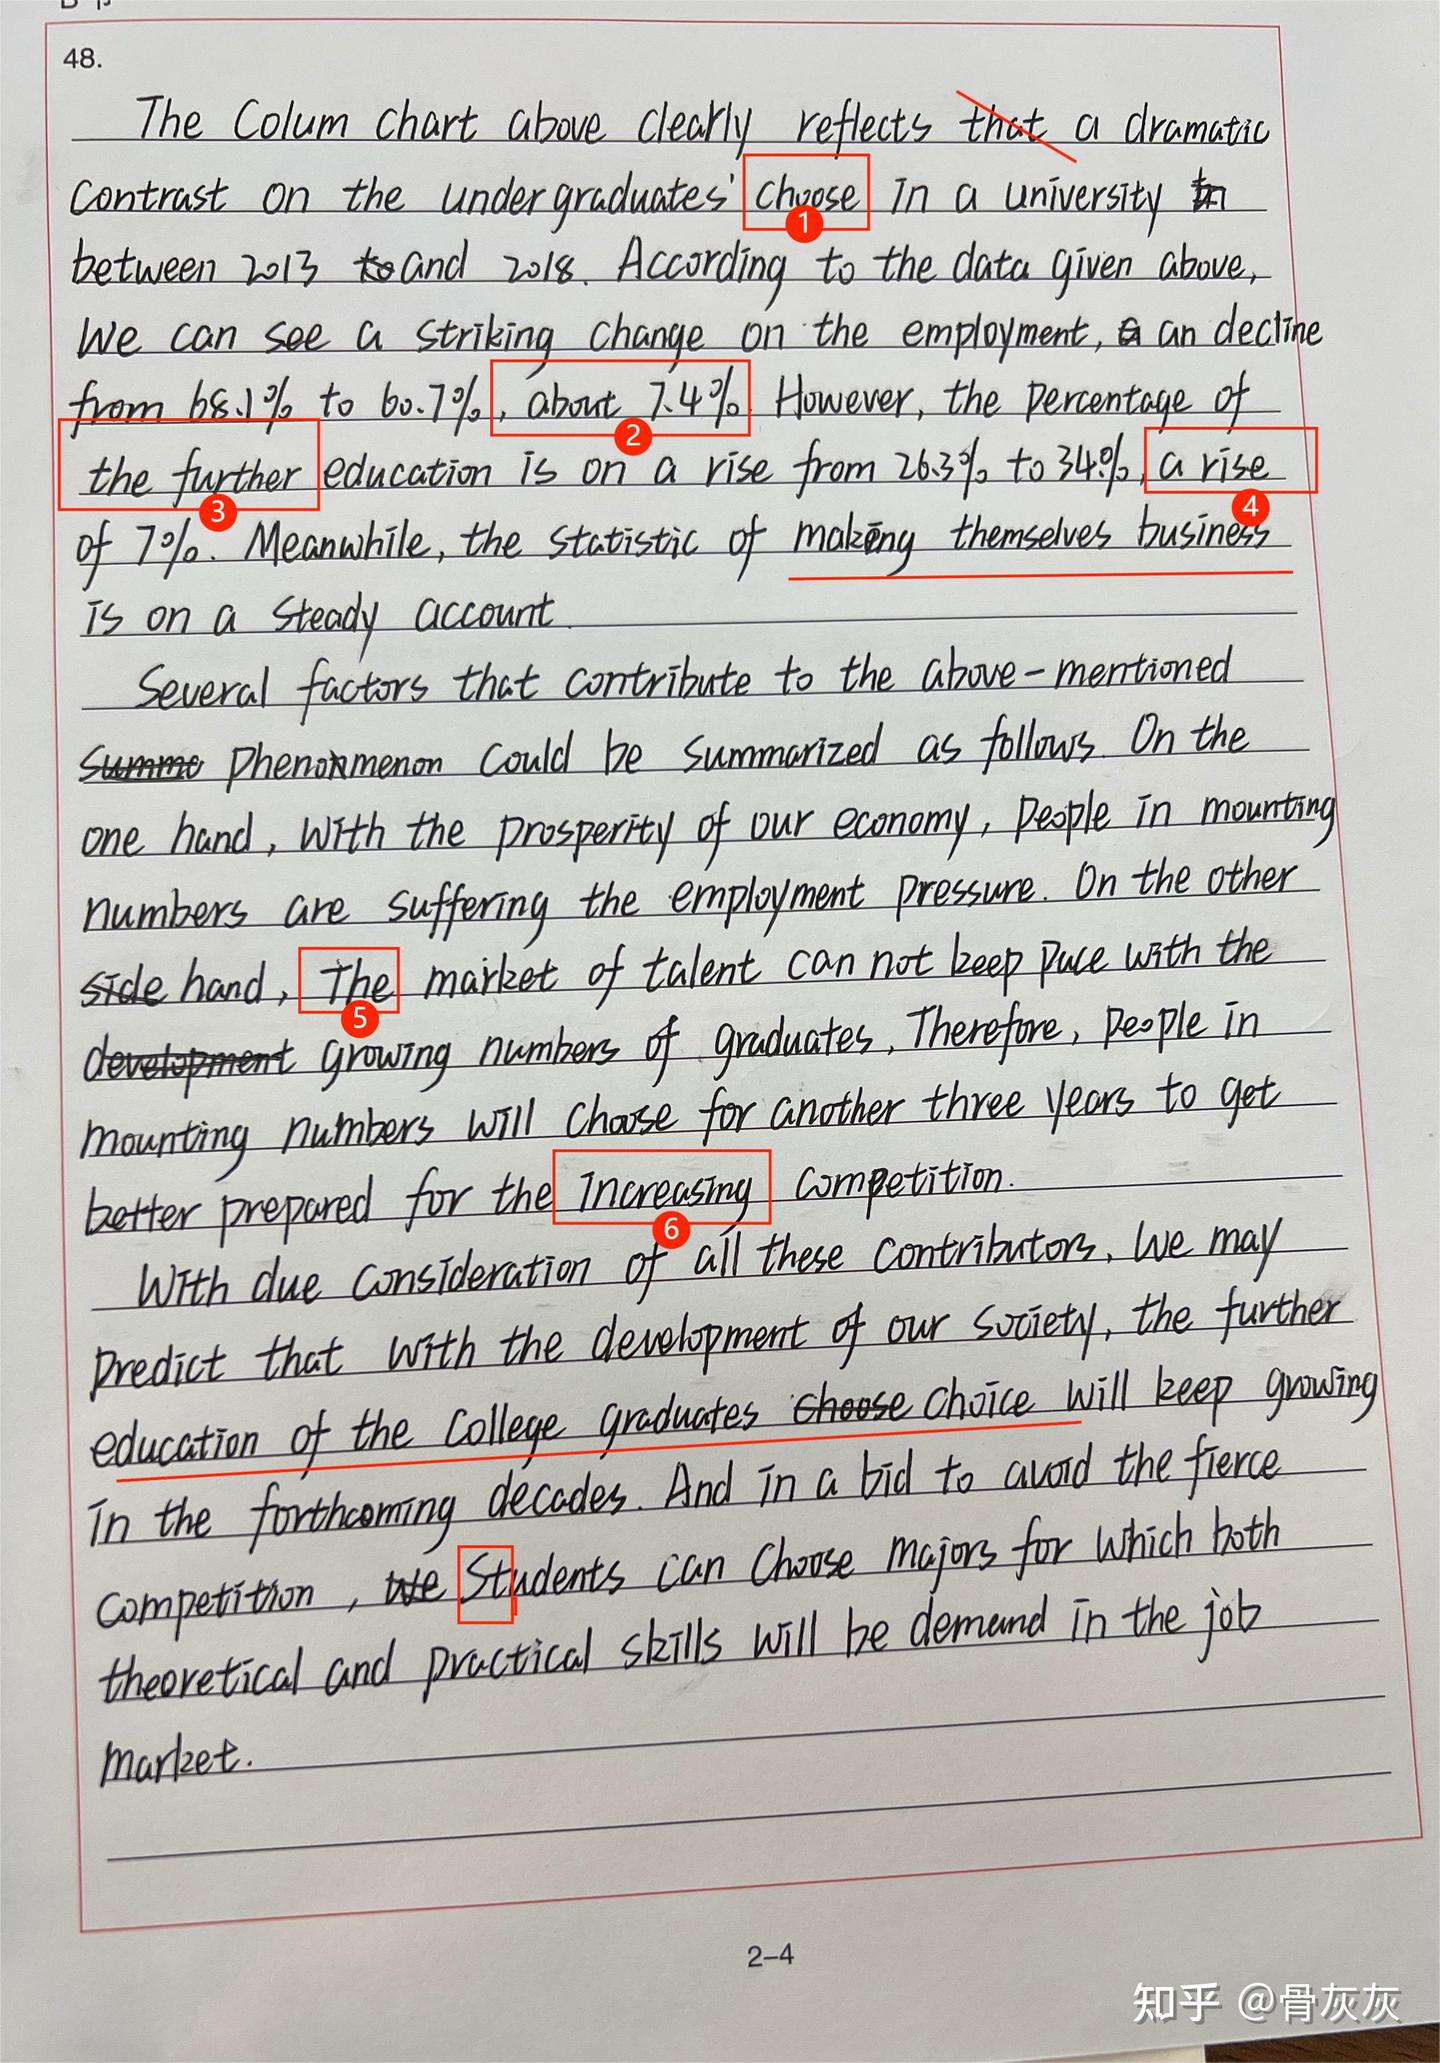 48.
The Colum chart above clearly reflects that a dramatic
contrast on the undergraduates' choose in a university
between 2013 to and 2018. According to the data given above,
we can see a striking change on the employment, a an decline
from 68.1% to 60.7%, about 7.4%. However, the percentage of
the further education is on a rise from 26.3% to 34%, a rise
of 7%. Meanwhile, the statistic of making themselves business
is on a steady account.
Several factors that contribute to the above-mentioned
summc phenonmenon could be summarized as follows. On the
one hand, with the prosperity of our economy, people in mounting
numbers are suffering the employment pressure. On the other
side hand, The market of talent can not keep pace with the
development growing numbers of graduates, Therefore, people in
mounting numbers will choose for another three years to get
better prepared for the increasing competition.
With due consideration of all these contributors, we may
predict that with the development of our society, the further
education of the college graduates choose choice will keep growing
in the forthcoming decades. And in a bid to avoid the fierce
competition, we Students can choose majors for which both
theoretical and practical skills will be demand in the job
market.
1
2
3
4
5
6
2-4
知乎 @骨灰灰